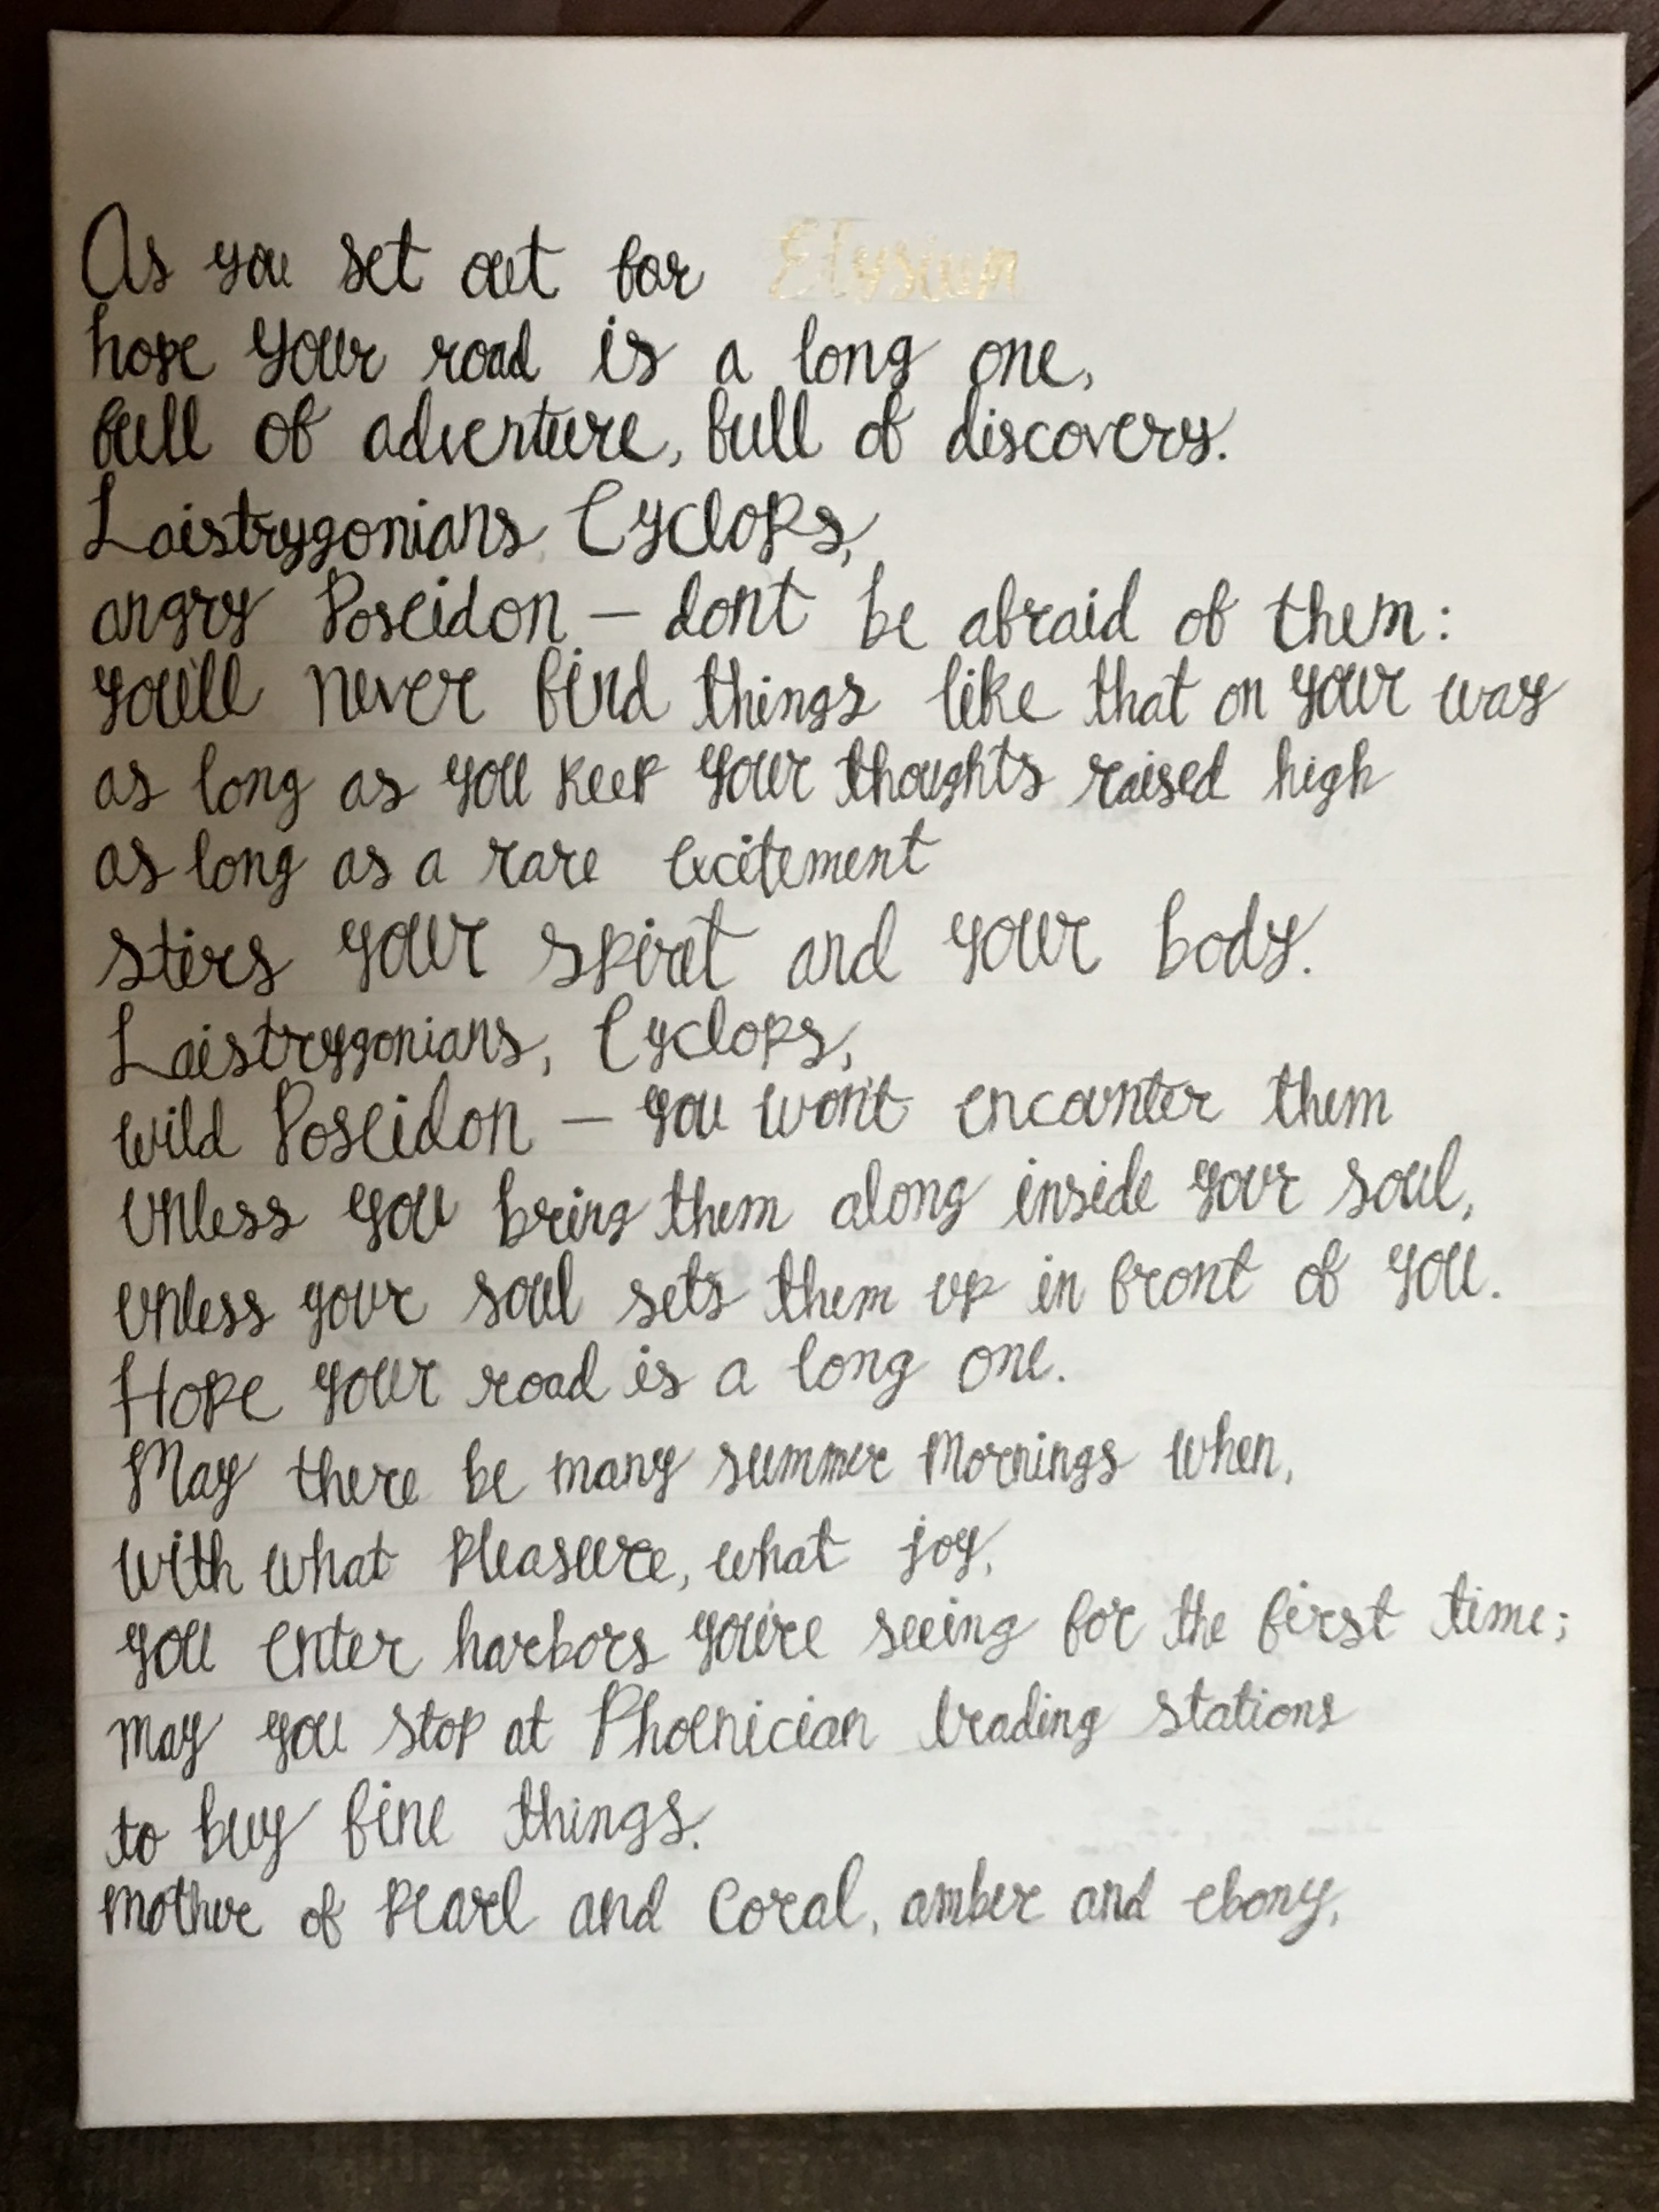 As you set out for Elysium
hope your road is a long one,
full of adventure, full of discovery.
Laistrygonians, Cyclops,
angry Poseidon – dont be afraid of them:
you'll never find things like that on your way
as long as you keep your thoughts raised high
as long as a rare excitement
stirs your spirit and your body.
Laistrygonians, Cyclops,
wild Poseidon – you won't encounter them
unless you bring them along inside your soul,
unless your soul sets them up in front of you.
Hope your road is a long one.
May there be many summer mornings when,
with what pleasure, what joy,
you enter harbors you're seeing for the first time;
may you stop at Phoenician trading stations
to buy fine things.
mother of pearl and coral, amber and ebony,